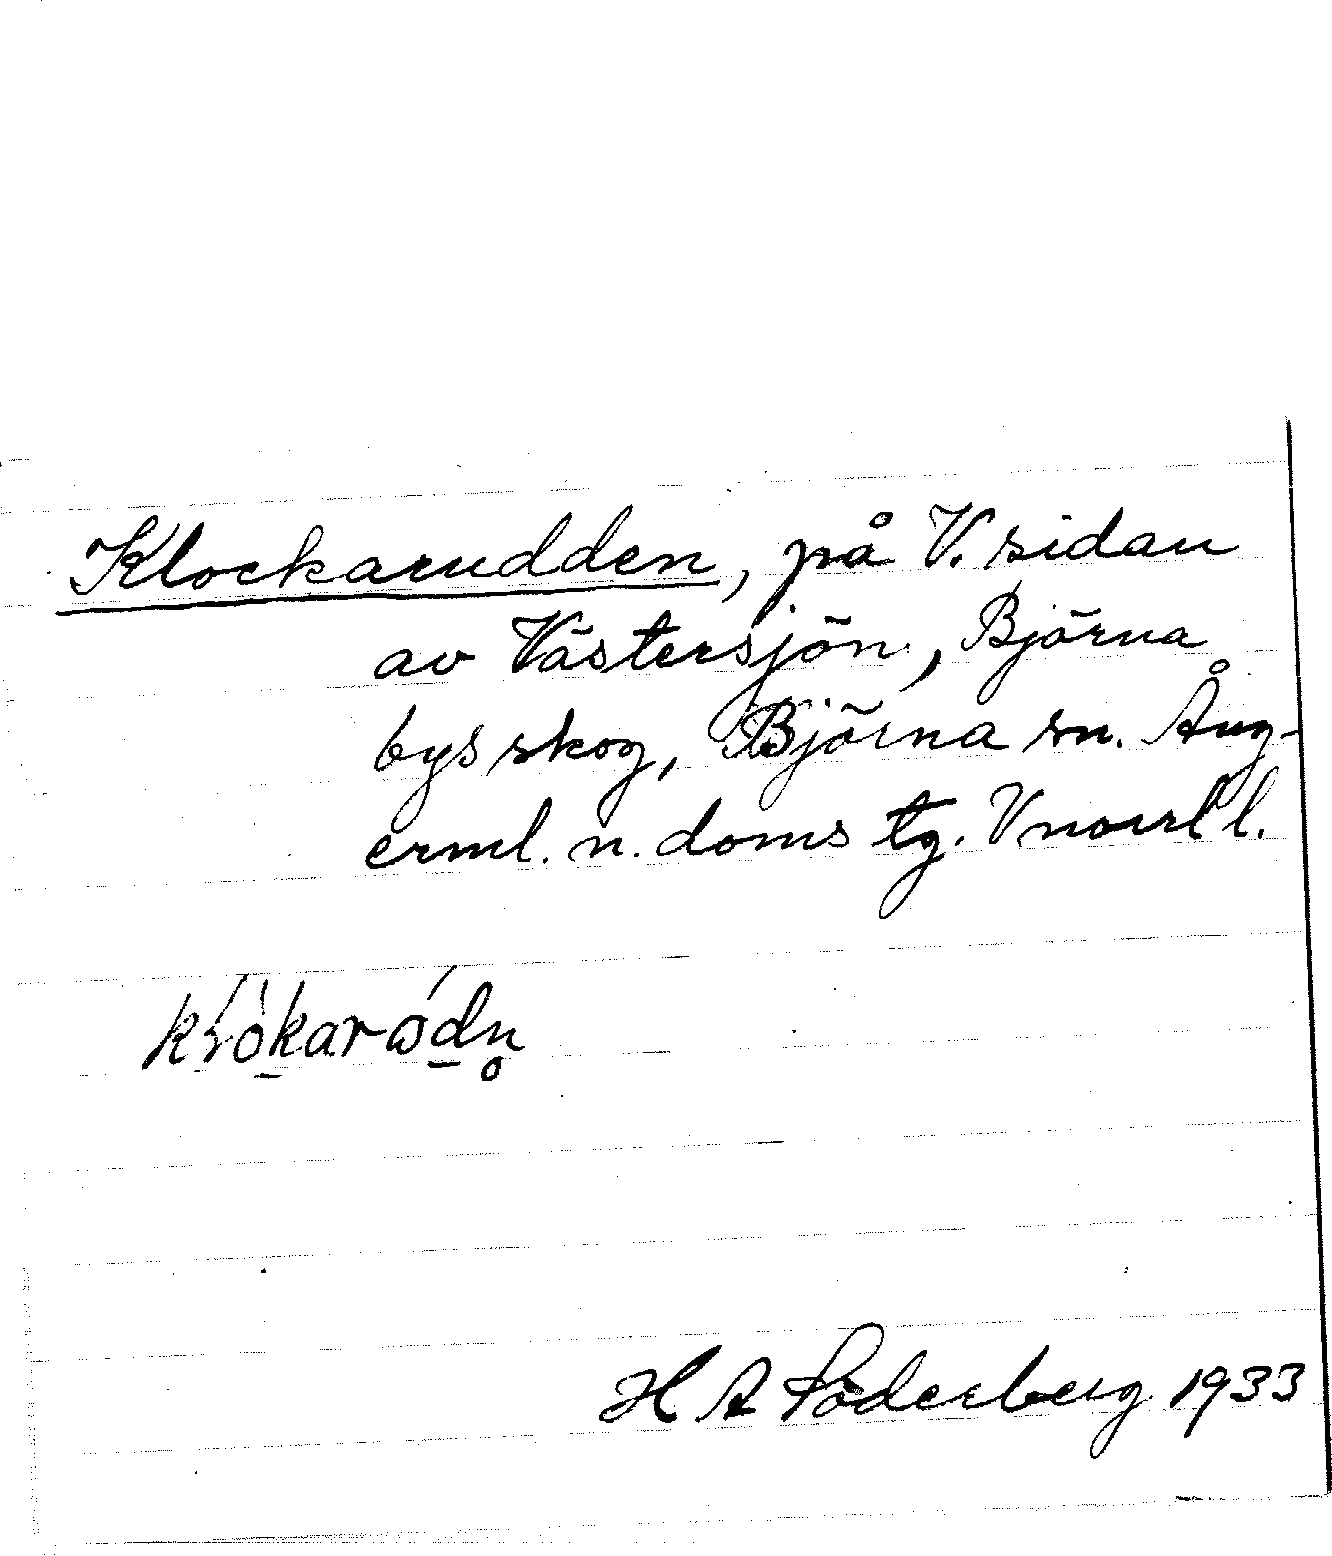 Klockarudden, på V. sidan
av Västersjön, Björna
bys skog, Björna sn. Ång-
erml. n. doms tg. Vnorrl l.
H A Söderberg 1933